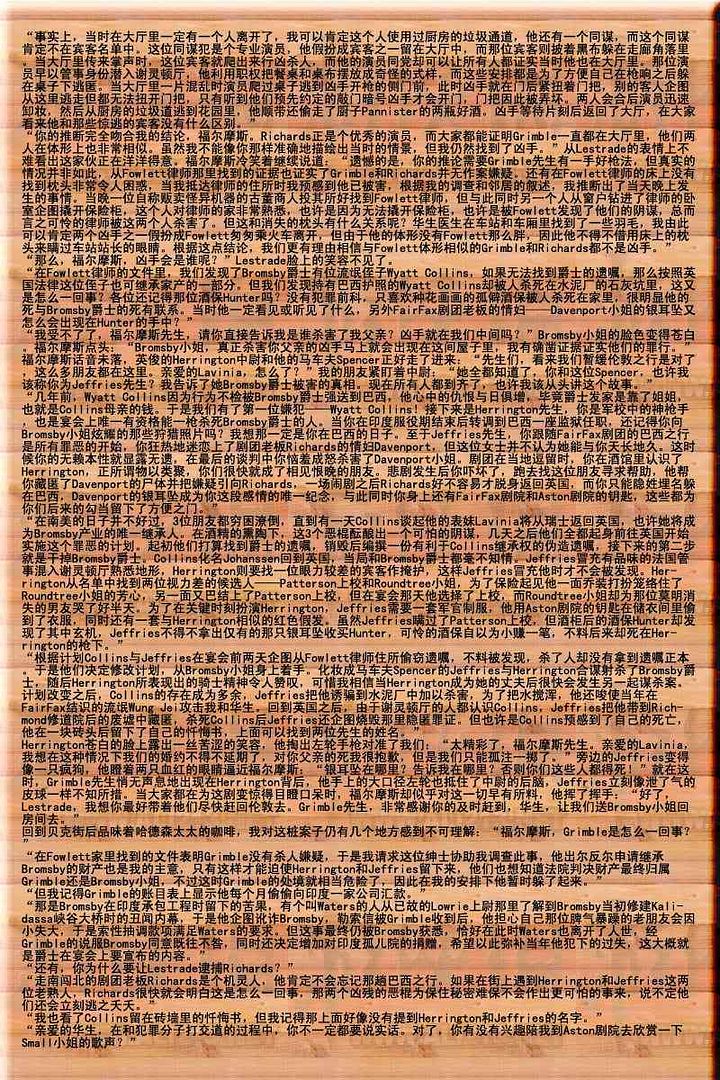 “事实上，当时在大厅里一定有一个人离开了，我可以肯定这个人使用过厨房的垃圾通道，他还有一个同谋，而这个同谋
肯定不在宾客名单中。这位同谋犯是个专业演员，他假扮成宾客之一留在大厅中，而那位宾客则披着黑布躲在走廊角落里
，当大厅里传来掌声时，这位宾客就爬出来行凶杀人，而他的演员同党却可以让所有人都证实当时他也在大厅里。那位演
员早以管事身份潜入谢灵顿厅，他利用职权把餐桌和桌布摆放成奇怪的式样，而这些安排都是为了方便自己在枪响之后躲
在桌子下逃匿。当大厅里一片混乱时演员爬过桌子逃到凶手开枪的侧门前，此时凶手就在门后紧扭着门把，别的客人企图
从这里逃走但都无法扭开门把，只有听到他们预先约定的敲门暗号凶手才会开门，门把因此被弄坏。两人会合后演员迅速
卸妆，然后从厨房的垃圾道逃到花园里，他顺带还偷走了厨子Pannister的两瓶好酒，凶手等待片刻后返回了大厅，在大家
看来他和那些惊逃的宾客没有什么区别。”
“你的推断完全吻合我的结论，福尔摩斯。Richards正是个优秀的演员，而大家都能证明Grimble一直都在大厅里，他们两
人在体形上也非常相似。虽然我不能像你那样准确地描绘出当时的情景，但我仍然找到了凶手。”从Lestrade的表情上不
难看出这家伙正在洋洋得意。福尔摩斯冷笑着继续说道：“遗憾的是，你的推论需要Grimble先生有一手好枪法，但真实的
情况并非如此，从Fowlett律师那里找到的证据也证实了Grimble和Richards并无作案嫌疑。还有在Fowlett律师的床上没有
找到枕头非常令人困惑，当我抵达律师的住所时我预感到他已被害，根据我的调查和邻居的叙述，我推断出了当天晚上发
生的事情。当晚一位自称贩卖怪异机器的古董商人投其所好找到Fowlett律师，但与此同时另一个人从窗户钻进了律师的卧
室企图撬开保险柜，这个人对律师的家非常熟悉，也许是因为无法撬开保险柜，也许是被Fowlett发现了他们的阴谋，总而
言之可怜的律师被这两个人杀害了。但这和消失的枕头有什么关系呢？华生医生在车站和车厢里找到了一些羽毛，我由此
可以肯定两个凶手之一假扮成Fowlett匆匆乘火车离开，但由于他的体形没有Fowlett那么胖，因此他不得不借用床上的枕
头来瞒过车站站长的眼睛。根据这点结论，我们更有理由相信与Fowlett体形相似的Grimble和Richards都不是凶手。”
“那么，福尔摩斯，凶手会是谁呢？”Lestrade脸上的笑容不见了。
“在Fowlett律师的文件里，我们发现了Bromsby爵士有位流氓侄子Wyatt Collins，如果无法找到爵士的遗嘱，那么按照英
国法律这位侄子也可继承家产的一部分。但我们发现持有巴西护照的Wyatt Collins却被人杀死在水泥厂的石灰坑里，这又
是怎么一回事？各位还记得那位酒保Hunter吗？没有犯罪前科，只喜欢种花画画的孤僻酒保被人杀死在家里，很明显他的
死与Bromsby爵士的死有联系。当时他一定看见或听见了什么，另外FairFax剧团老板的情妇——Davenport小姐的银耳坠又
怎么会出现在Hunter的手中？”
“我受不了了，福尔摩斯先生，请你直接告诉我是谁杀害了我父亲？凶手就在我们中间吗？”Bromsby小姐的脸色变得苍白
。福尔摩斯点头：“Bromsby小姐，真正杀害你父亲的凶手马上就会出现在这间屋子里，我有确凿证据证实他们的罪行。”
福尔摩斯话音未落，英俊的Herrington中尉和他的马车夫Spencer正好走了进来：“先生们，看来我们暂缓伦敦之行是对了
，这么多朋友都在这里。亲爱的Lavinia，怎么了？”我的朋友紧盯着中尉：“她全都知道了，你和这位Spencer，也许我
该称你为Jeffries先生？我告诉了她Bromsby爵士被害的真相。现在所有人都到齐了，也许我该从头讲这个故事。”
“几年前，Wyatt Collins因为行为不检被Bromsby爵士强送到巴西，他心中的仇恨与日俱增，毕竟爵士发家是靠了姐姐，
也就是Collins母亲的钱。于是我们有了第一位嫌犯——Wyatt Collins！接下来是Herrington先生，你是军校中的神枪手
，也是宴会上唯一有资格能一枪杀死Bromsby爵士的人。当你在印度服役期结束后转调到巴西一座监狱任职，还记得你向
Bromsby小姐炫耀的那些狩猎照片吗？我想那一定是你在巴西的日子。至于Jeffries先生，你跟随FairFax剧团的巴西之行
是所有罪恶的开始，你狂热地迷恋上了剧团老板Richards的情妇Davenport，但这位女士并不认为她能与你天长地久，这时
候你的无赖本性就显露无遗，在最后的谈判中你恼羞成怒杀害了Davenport小姐。剧团在当地逗留时，你在酒馆里认识了
Herrington，正所谓物以类聚，你们很快就成了相见恨晚的朋友。悲剧发生后你吓坏了，跑去找这位朋友寻求帮助，他帮
你藏匿了Davenport的尸体并把嫌疑引向Richards，一场闹剧之后Richards好不容易才脱身返回英国，而你只能隐姓埋名躲
在巴西，Davenport的银耳坠成为你这段感情的唯一纪念，与此同时你身上还有FairFax剧院和Aston剧院的钥匙，这些都为
你们后来的勾当留下了方便之门。”
“在南美的日子并不好过，3位朋友都穷困潦倒，直到有一天Collins谈起他的表妹Lavinia将从瑞士返回英国，也许她将成
为Bromsby产业的唯一继承人。在酒精的熏陶下，这3个恶棍酝酿出一个可怕的阴谋，几天之后他们全都起身前往英国开始
实施这个罪恶的计划。起初他们打算找到爵士的遗嘱，销毁后编撰一份有利于Collins继承权的伪造遗嘱，接下来的第二步
就是干掉Bromsby爵士。Collins化名Johanssen回到英国，当局和Bromsby爵士都毫不知情。Jeffries冒充有品味的法国管
事混入谢灵顿厅熟悉地形，Herrington则要找一位眼力较差的宾客作掩护，这样Jeffries冒充他时才不会被发现。Her-
rington从名单中找到两位视力差的候选人——Patterson上校和Roundtree小姐，为了保险起见他一面乔装打扮笼络住了
Roundtree小姐的芳心，另一面又巴结上了Patterson上校，但在宴会那天他选择了上校，而Roundtree小姐却为那位莫明消
失的男友哭了好半天。为了在关键时刻扮演Herrington，Jeffries需要一套军官制服，他用Aston剧院的钥匙在储衣间里偷
到了衣服，同时还有一套与Herrington相似的红色假发。虽然Jeffries瞒过了Patterson上校，但酒柜后的酒保Hunter却发
现了其中玄机，Jeffries不得不拿出仅有的那只银耳坠收买Hunter，可怜的酒保自以为小赚一笔，不料后来却死在Her-
rington的枪下。”
“根据计划Collins与Jeffries在宴会前两天企图从Fowlett律师住所偷窃遗嘱，不料被发现，杀了人却没有拿到遗嘱正本
。于是他们决定修改计划，从Bromsby小姐身上着手，化妆成马车夫Spencer的Jeffries与Herrington合谋射杀了Bromsby爵
士，随后Herrington所表现出的骑士精神令人赞叹，可惜我相信当Herrington成为她的丈夫后很快会发生另一起谋杀案。
计划改变之后，Collins的存在成为多余，Jeffries把他诱骗到水泥厂中加以杀害，为了把水搅浑，他还唆使当年在
FairFax结识的流氓Wung Jei攻击我和华生。回到英国之后，由于谢灵顿厅的人都认识Collins，Jeffries把他带到Rich-
mond修道院后的废墟中藏匿，杀死Collins后Jeffries还企图烧毁那里隐匿罪证。但也许是Collins预感到了自己的死亡，
他在一块砖头后留下了自己的忏悔书，上面可以找到两位先生的姓名。”
Herrington苍白的脸上露出一丝苦涩的笑容，他掏出左轮手枪对准了我们：“太精彩了，福尔摩斯先生。亲爱的Lavinia，
我想在这种情况下我们的婚约不得不延期了，对你父亲的死我很抱歉，但是我们只能孤注一掷了。”旁边的Jeffries变得
像一只疯狗，他瞪着两只血红的眼睛逼近福尔摩斯：“银耳坠在哪里？告诉我在哪里？否则你们这些人都得死！”就在这
时，Grimble先生悄无声息地出现在Herrington背后，他手上的大口径左轮也抵住了中尉的后脑，Jeffries立刻像泄了气的
皮球一样不知所措。当大家都在为这剧变惊得目瞪口呆时，福尔摩斯却似乎对这一切早有所料，他挥了挥手，“好了，
Lestrade，我想你最好带着他们尽快赶回伦敦去。Grimble先生，非常感谢你的及时赶到，华生，让我们送Bromsby小姐回
房间去。”
回到贝克街后品味着哈德森太太的咖啡，我对这桩案子仍有几个地方感到不可理解：“福尔摩斯，Grimble是怎么一回事？
”
“在Fowlett家里找到的文件表明Grimble没有杀人嫌疑，于是我请求这位绅士协助我调查此事，他出尔反尔申请继承
Bromsby的财产也是我的主意，只有这样才能迫使Herrington和Jeffries留下来，他们也想知道法院判决财产最终归属
Grimble还是Bromsby小姐，不过这时Grimble的处境就相当危险了，因此在我的安排下他暂时躲了起来。”
“但我记得Grimble的账目表上显示他每个月偷偷向印度一家公司汇款。”
“那是Bromsby在印度承包工程时留下的苦果，有个叫Waters的人从已故的Lowrie上尉那里了解到Bromsby当初修建Kali-
dassa峡谷大桥时的丑闻内幕，于是他企图讹诈Bromsby，勒索信被Grimble收到后，他担心自己那位脾气暴躁的老朋友会因
小失大，于是索性抽调款项满足Waters的要求，但这事最终仍被Bromsby获悉，恰好在此时Waters也离开了人世，经
Grimble的说服Bromsby同意既往不咎，同时还决定增加对印度孤儿院的捐赠，希望以此弥补当年他犯下的过失，这大概就
是爵士在宴会上要宣布的内容。”
“还有，你为什么要让Lestrade逮捕Richards？”
“走南闯北的剧团老板Richards是个机灵人，他肯定不会忘记那趟巴西之行。如果在街上遇到Herrington和Jeffries这两
位老熟人，Richards很快就会明白这是怎么一回事，那两个凶残的恶棍为保住秘密难保不会作出更可怕的事来，说不定他
们还会立刻逃之夭夭。”
“我也看了Collins留在砖墙里的忏悔书，但我记得那上面好像没有提到Herrington和Jeffries的名字。”
“亲爱的华生，在和犯罪分子打交道的过程中，你不一定都要说实话。对了，你有没有兴趣陪我到Aston剧院去欣赏一下
Small小姐的歌声？”